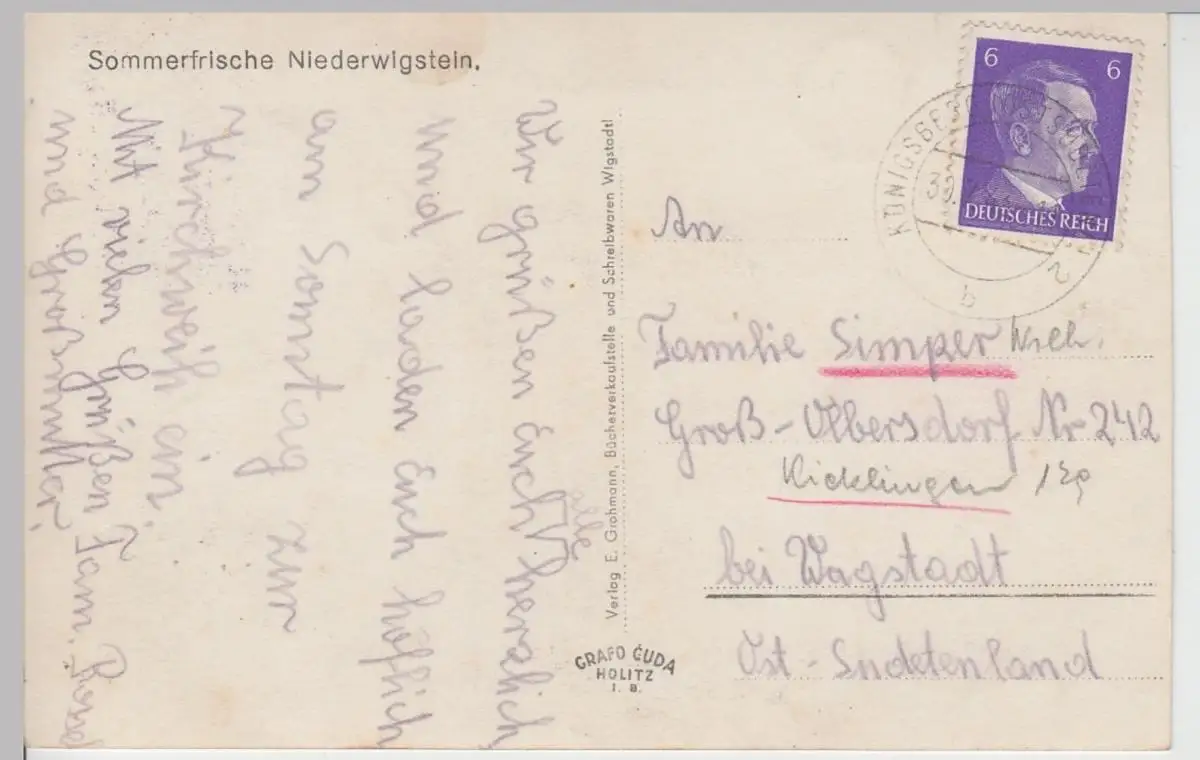 Sommerfrische Niederwigstein.
Wir grüßen Euch alle herzlich
und laden Euch höflich
am Sonntag zur
Kirchweih ein.
Mit vielen Grüßen Fam.
und Großmutter
Verlag E. Grohmann, Bücherverkaufstelle und Schreibwaren Wigstadtl
GRAFO ČUDA
HOLITZ
I. B.
6 6
DEUTSCHES REICH
KÖNIGSBERG
b
2
An
Familie Simper
Groß-Olbersdorf Nr 242
Kicklingen
bei Wagstadt
Ost-Sudetenland